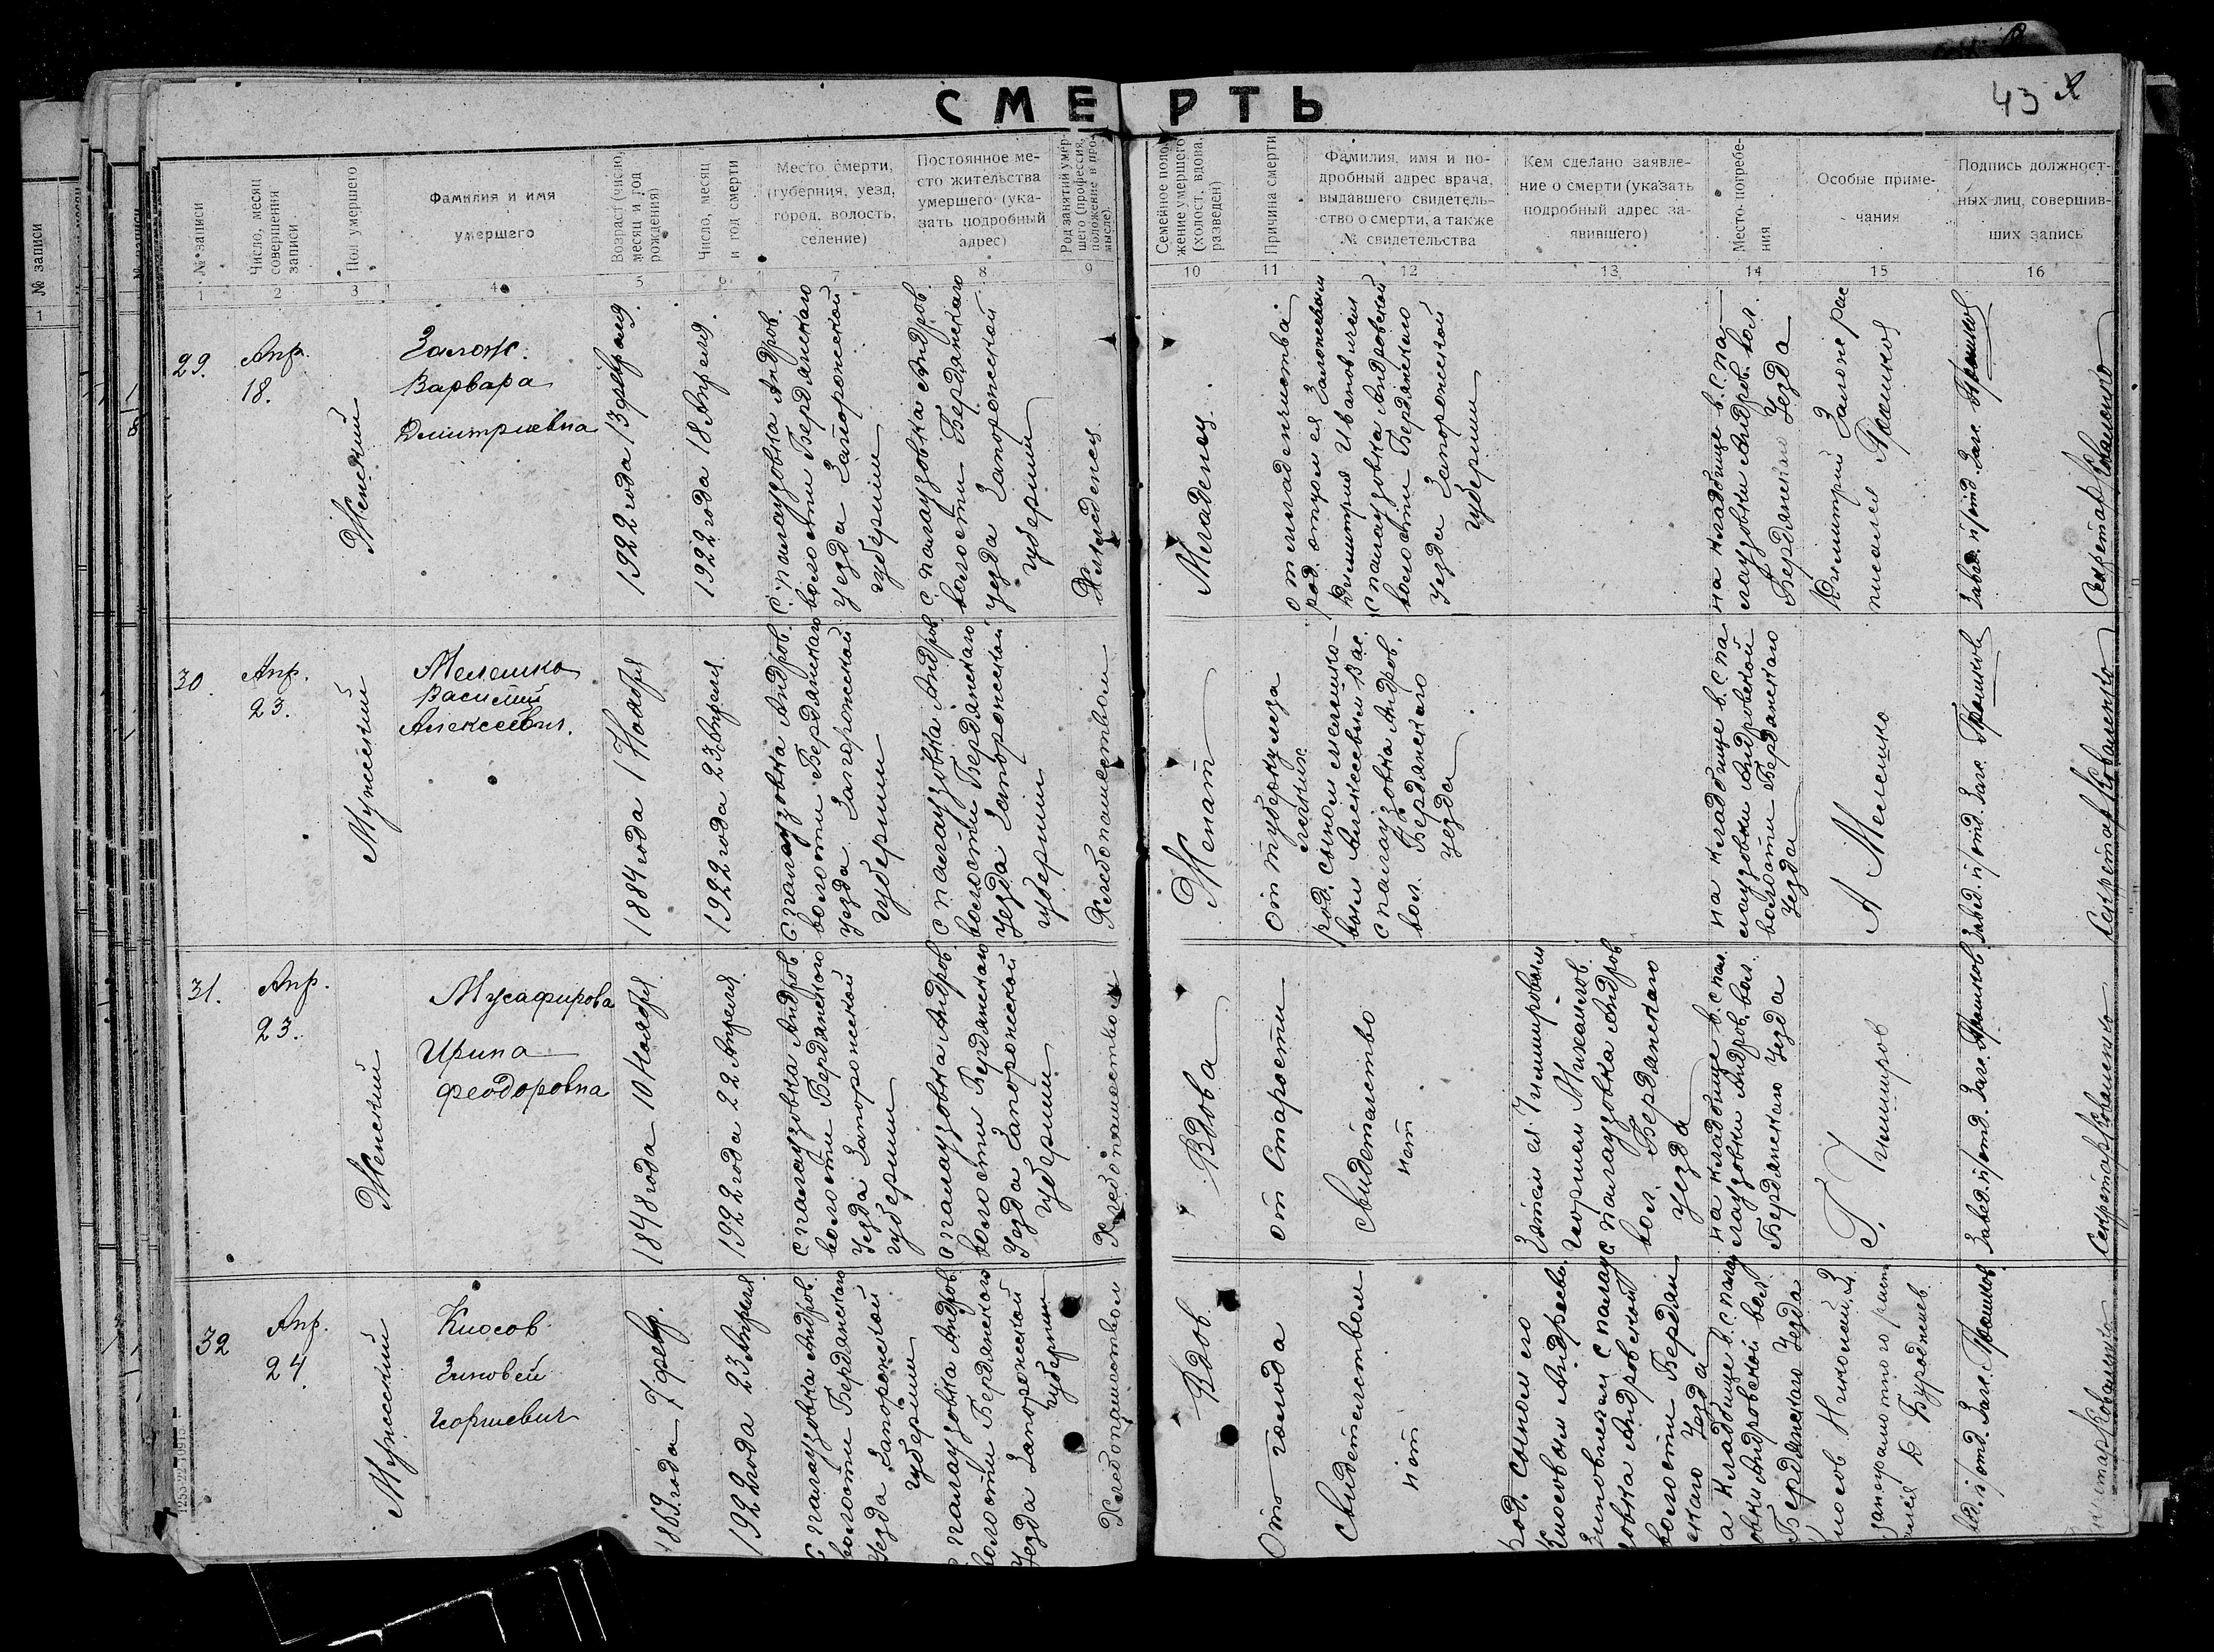 СМЕРТЬ
43
№ записи
1
№ записи
Число, месяц совершения записи
Пол умершего
Фамилия и имя умершего
Возраст (число, месяц и год рождения)
Число, месяц и год смерти
Место смерти, (губерния, уезд, город, волость, селение)
Постоянное место жительства умершего (указать подробный адрес)
Род занятий умершего (профессия, положение в промысле).
Семейное положение умершего (холост, вдова, разведен)
Причина смерти
Фамилия, имя и подробный адрес врача, выдавшего свидетельство о смерти, а также № свидетельства
Кем сделано заявление о смерти (указать подробный адрес заявившего)
Место погребения
Особые примечания
Подпись должностных лиц, совершивших запись
1 2 3 4 5 6 7 8 9 10 11 12 13 14 15 16
29.
Апр.
18.
Женский
Залож.
Варвара
Дмитриевна
1922 года 13 февраля.
1922 года 18 Апреля.
с. Палаузовка Андров.
волости Бердянского
уезда Запорожской
губернии
с Палаузовка Андров.
волости Бердянского
уезда Запорожской
губернии
Младенец
Младенец.
от младенчества.
род. отцом ея
Дмитрия Ивановичем
с Палаузовка Андровской
волости Бердянского
уезда Запорожской
губернии
на кладбище в с. Па-
лаузовки Андров. вол.
Бердянскаго Уезда
Дмитрий
Завед. п/отд. Загс.
Секретарь Коваленко
30.
Апр.
23.
Мужеский
Мелешко
Василий
Алексеевич.
1884 года 1 Ноября
1922 года 23 Апреля
с. Палаузовка Андров.
волости Бердянскаго
уезда Запорожской
губернии
с Палаузовка Андров.
волости Бердянскаго
уезда Запорожской
губернии
Хлебопашеством
Женат
от туберкулеза
легких.
род. сыном Мелешко-
вым Алексеевым Вас.
с Палаузовка Андров.
вол. Бердянского
уезда
на кладбище в с. Па
лаузовки Андровской
волости Бердянскаго
Уезда
А Мелешко
Завед. п/отд. Загс.
Секретарь Коваленко
31.
Апр.
23.
Женский
Мусафирова
Ирина
Феодоровна
1848 года 10 Ноября.
1922 года 22 Апреля.
с Палаузовка Андров.
волости Бердянского
уезда Запорожской
губернии
с Палаузовка Андров.
волости Бердянскаго
Уезда Запорожской
губернии
Хлебопашеством
Вдова
от старости
Свидетельство
нет
Зятем ея
Георгием Михайлов.
с Палаузовка Андров
вол. Бердянскаго
уезда
на кладбище в с Па
лаузовки Андров. вол.
Бердянскаго Уезда
Завед. п/отд. Загс.
Секретарь Коваленко
32
Апр.
24.
Мужеский
Киосов
Зиновей
Георгиевич
1869 года 7 февр.
1922 года 23 Апреля
с Палаузовка Андров.
волости Бердянскаго
Уезда Запорожской
губернии
с Палаузовка Андров.
волости Бердянского
Уезда Запорожской
губернии
Хлебопашеством
Вдов
От голода
Свидетельством
нет
род. сыном его
Киосовым Андреевы.
Зиновьевым с Палау
зовка Андровской
волости Бердян
скаго Уезда
на кладбище в с Пала
узовки Андровской вол.
Бердянскаго Уезда
Киосов Николай
Зав. п/отд. Загс.
Секретарь Коваленко